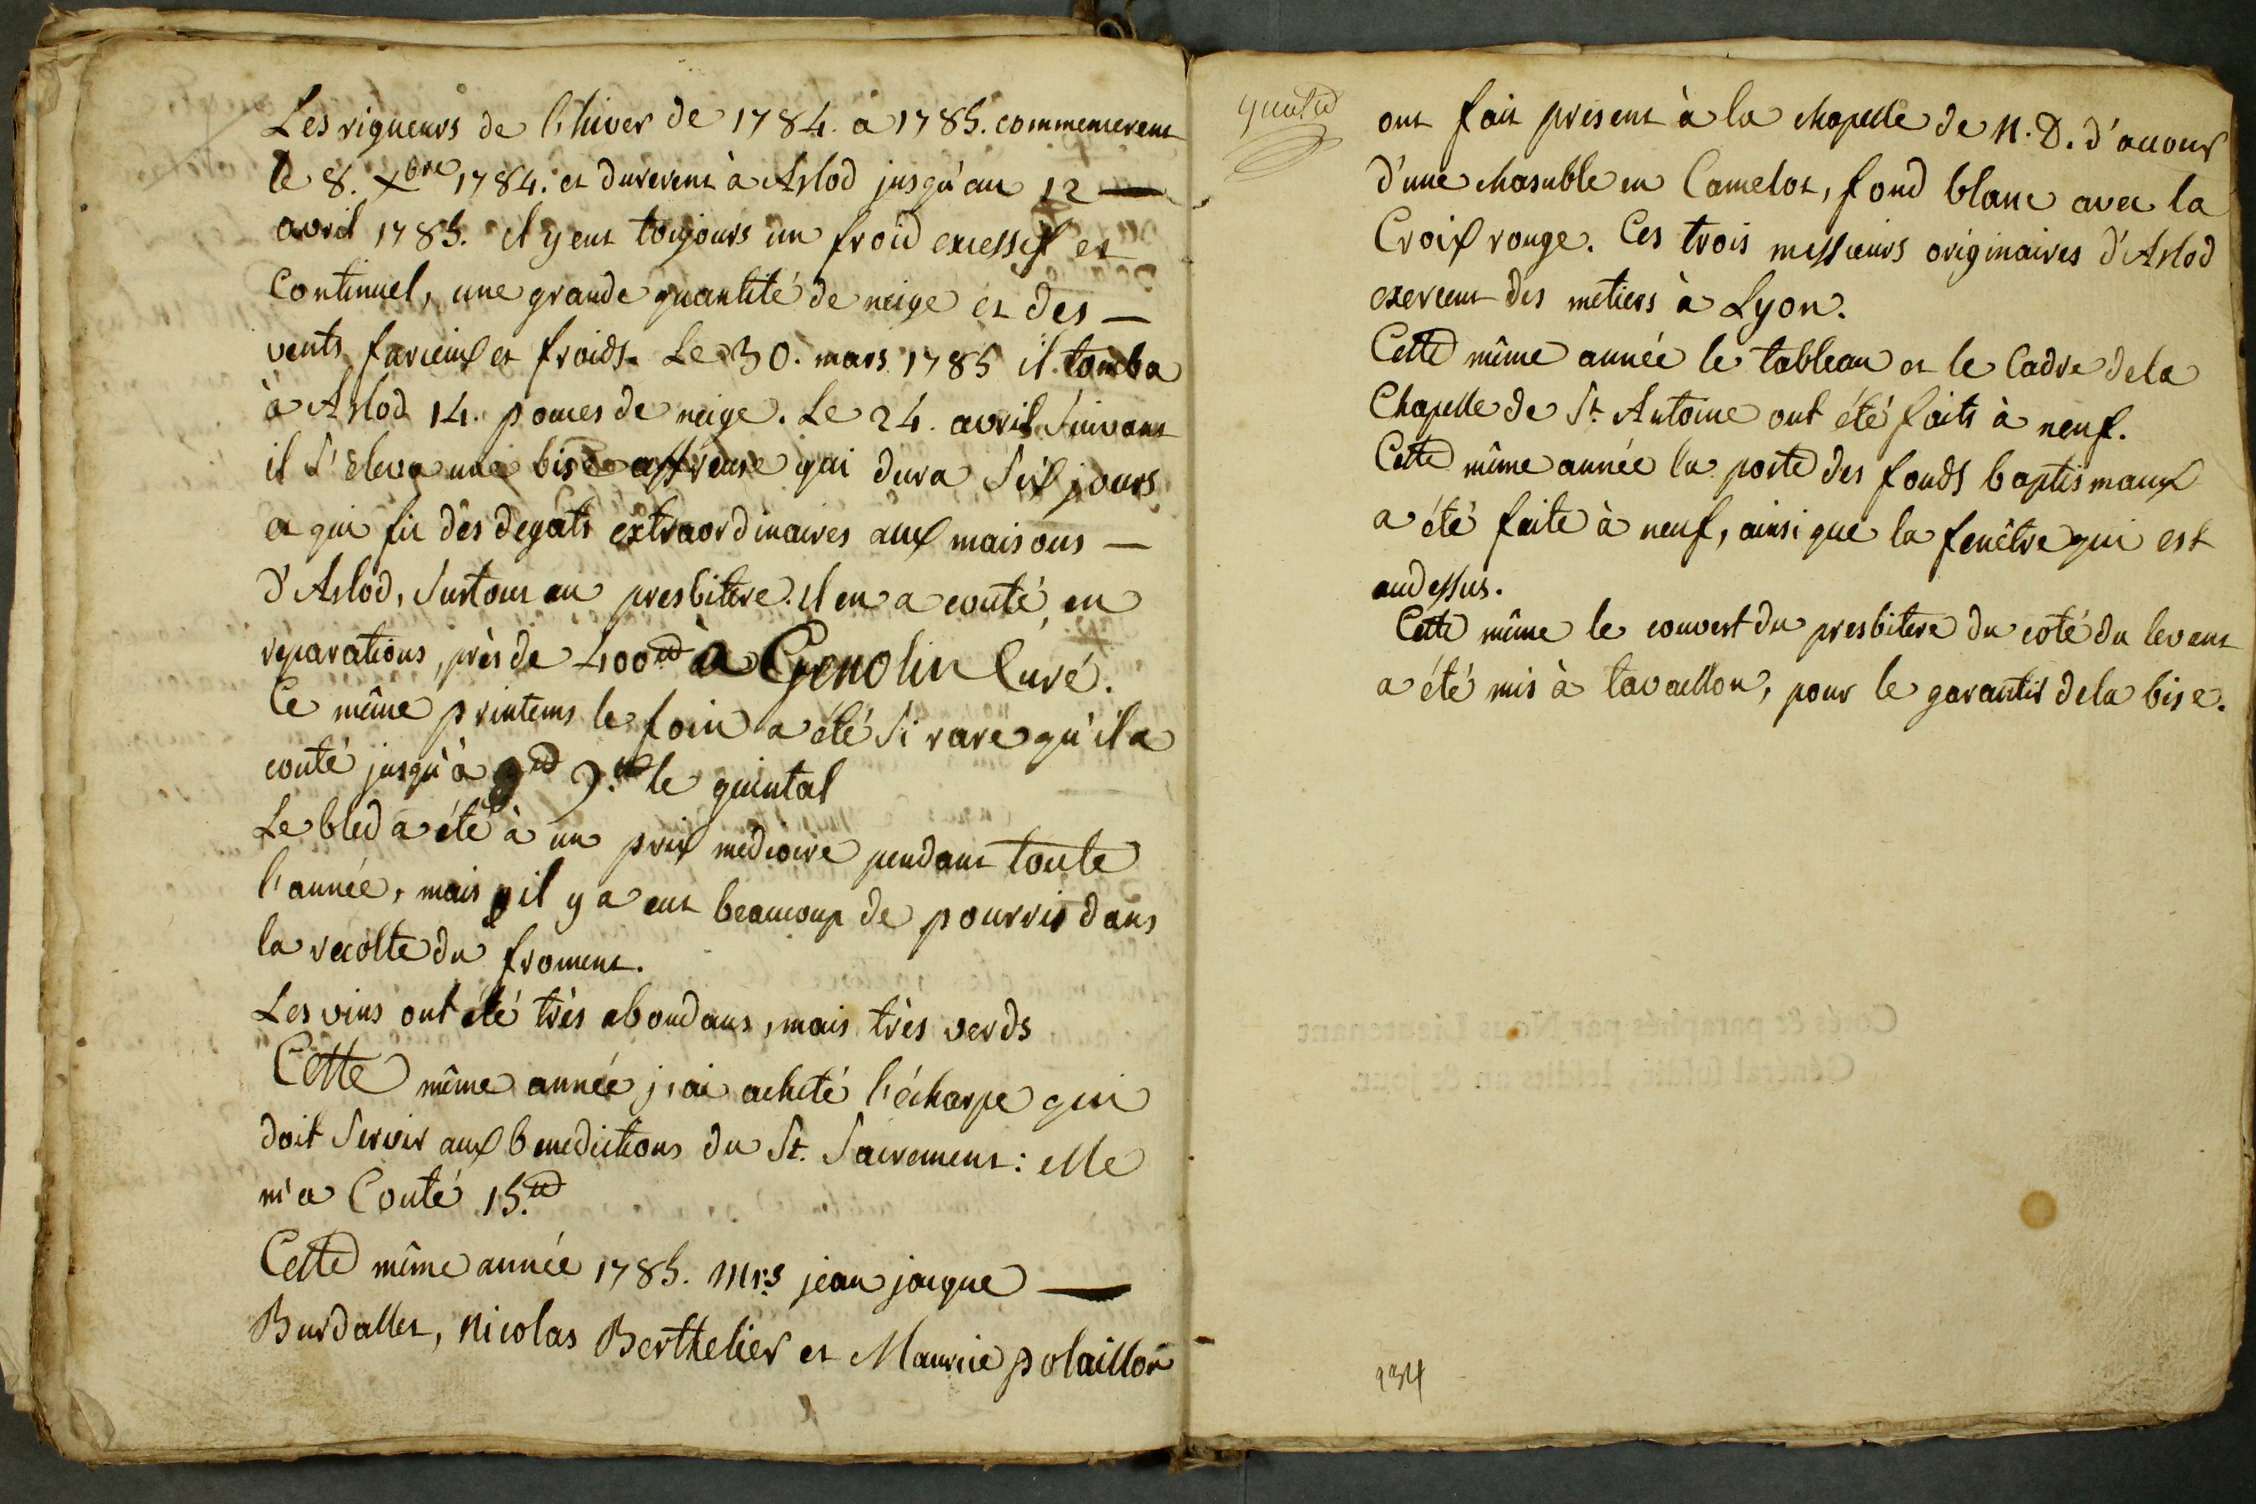 Les rigueurs de l'hiver de 1784. a 1785. commencerent
le 8. Xbre 1784. et durerent à Arlod jusqu'au 12 —
avril 1785. il y eut toujours un froid excessif et
continuel, une grande quantité de neige et des —
vents furieux et froids. Le 30. mars 1785 il tomba
à Arlod 14. pouces de neige. Le 24. avril suivant
il s'eleva une bise affreuse qui dura six jours
et qui fit des degats extraordinaires aux maisons —
d'Arlod, surtout au presbitere. il en a couté, en
reparations, près de 400tt à Genolin Curé.
Ce même printems le foin a été si rare qu'il a
couté jusqu'à 9tt le quintal
Le bled a été à un prix mediocre pendant toute
l'année, mais il y a eut beaucoup de pourris dans
la recolte du froment.
Les vins ont été très abondans, mais très verds
Cette même année j'ai acheté l'écharpe qui
doit servir aux benedictions du St. Sacrement: elle
m'a Couté 15.tt
Cette même année 1785. Mrs jean jacque —
Burdallet, Nicolas Berthelier et Maurice polaillon
ont fait présent à la chapelle de N. D. d'accour
d'une chasuble en Camelot, fond blanc avec la
Croix rouge. Ces trois messieurs originaires d'Arlod
exercent des metiers à Lyon.
Cette même année le tableau et le Cadre de la
Chapelle de St. Antoine ont été faits à neuf.
Cette même année la porte des fonds baptismaux
a été faite à neuf, ainsi que la fenêtre qui est
audessus.
Cette même le couvert du presbitere du coté du levant
a été mis à tavaillon, pour le garantir de la bise.
134